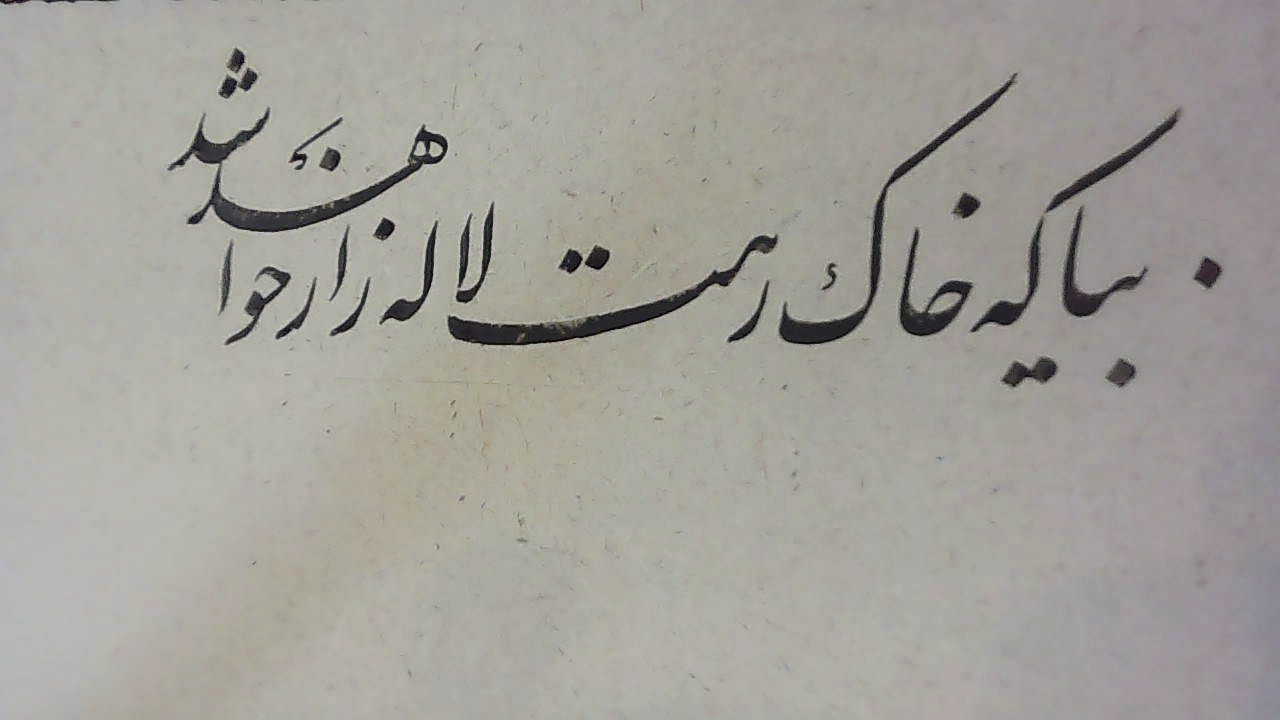 بیا که خاک رهت لاله زار خواهد شد